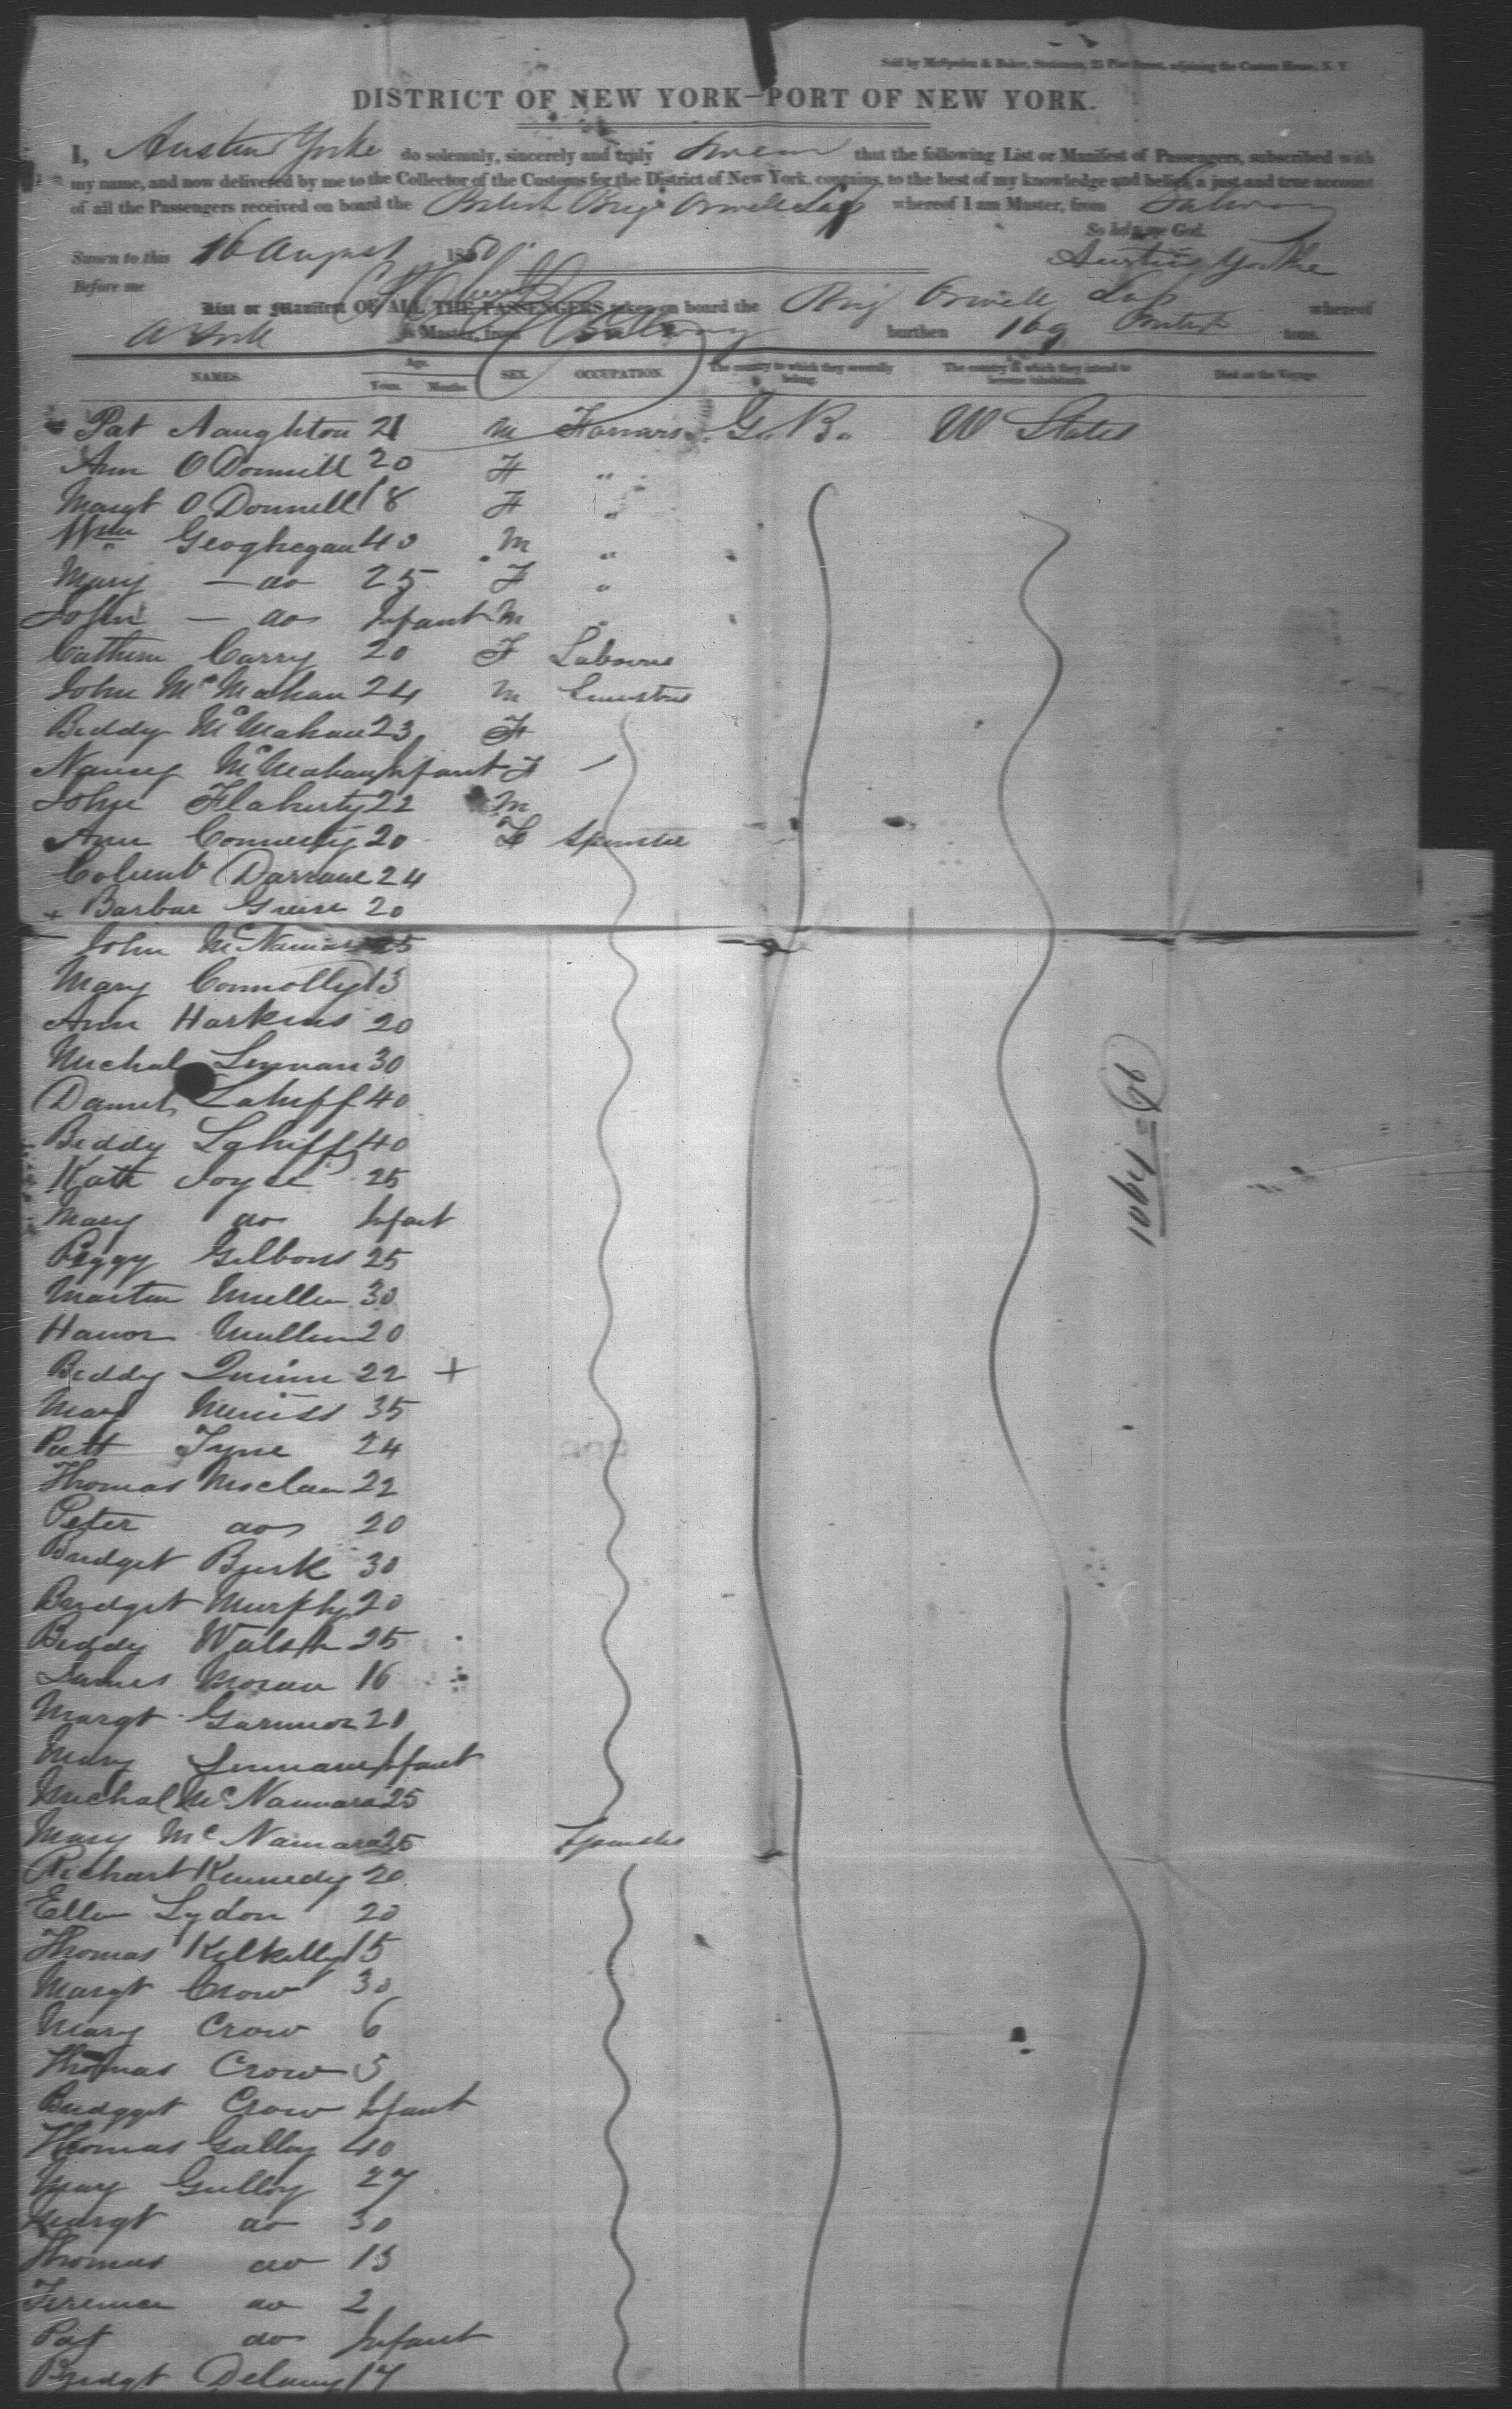 Sold by McSpedon & Baker, Stationers, 25 Pine Street, adjoining the Custom House, N. Y.
DISTRICT OF NEW YORK—PORT OF NEW YORK.
I, Austin Yorke do solemnly, sincerely and truly swear that the following List or Manifest of Passengers, subscribed with
my name, and now delivered by me to the Collector of the Customs for the District of New York, contains, to the best of my knowledge and belief, a just and true account
of all the Passengers received on board the British Brig Orwell Lass whereof I am Master, from Galway
So help me God.
Sworn to this 16 August 1850 Austin Yorke
Before me
List or Manifest OF ALL THE PASSENGERS taken on board the Brig Orwell Lass whereof
A York is Master, from Galway burthen 169 British tons.
NAMES. Age. Years. Months. SEX. OCCUPATION. The country to which they severally belong. The country in which they intend to become inhabitants. Died on the Voyage.
Pat Naughton 21 M Farmers G. B. U States
Ann O Donnell 20 F "
Margt O Donnell 18 F "
Wm Geoghegan 40 M "
Mary — do 25 F "
John — do Infant M "
Cathern Carry 20 F
John McMahan 24 M
Biddy McMahan 23 F
Nancy McMahan Infant F
John Flaherty 22 M
Ann 20 F Spinster
Darrane 24
+ Barbar 20
John McNamara 25
Mary Connolly 13
Ann Harkins 20
Michal Lennan 30
Daniel Lahiff 40
Biddy Lahiff 40
Kate Joyce 25
Mary do Infant
Peggy Gilbons 25
Martin Mullen 30
Hanor Mullen 20
Biddy Quinn 22 +
Mary 35
Patt Tyne 24
Thomas 22
Peter do 20
Bridget Burk 30
Bridget Murphy 20
Biddy Walsh 25
James Moran 16
Margt 20
Mary Lennan Infant
Michal McNamara 25
Mary McNamara 25 Spinster
Richart Kennedy 20
Ellen Lydon 20
Thomas Kilkelly 15
Margt Crow 30
Mary Crow 6
Thomas Crow 5
Bridgget Crow Infant
Thomas 40
Mary 27
Margt do 30
Thomas do 13
do 2
Pat do Infant
Bridgt Delany 17